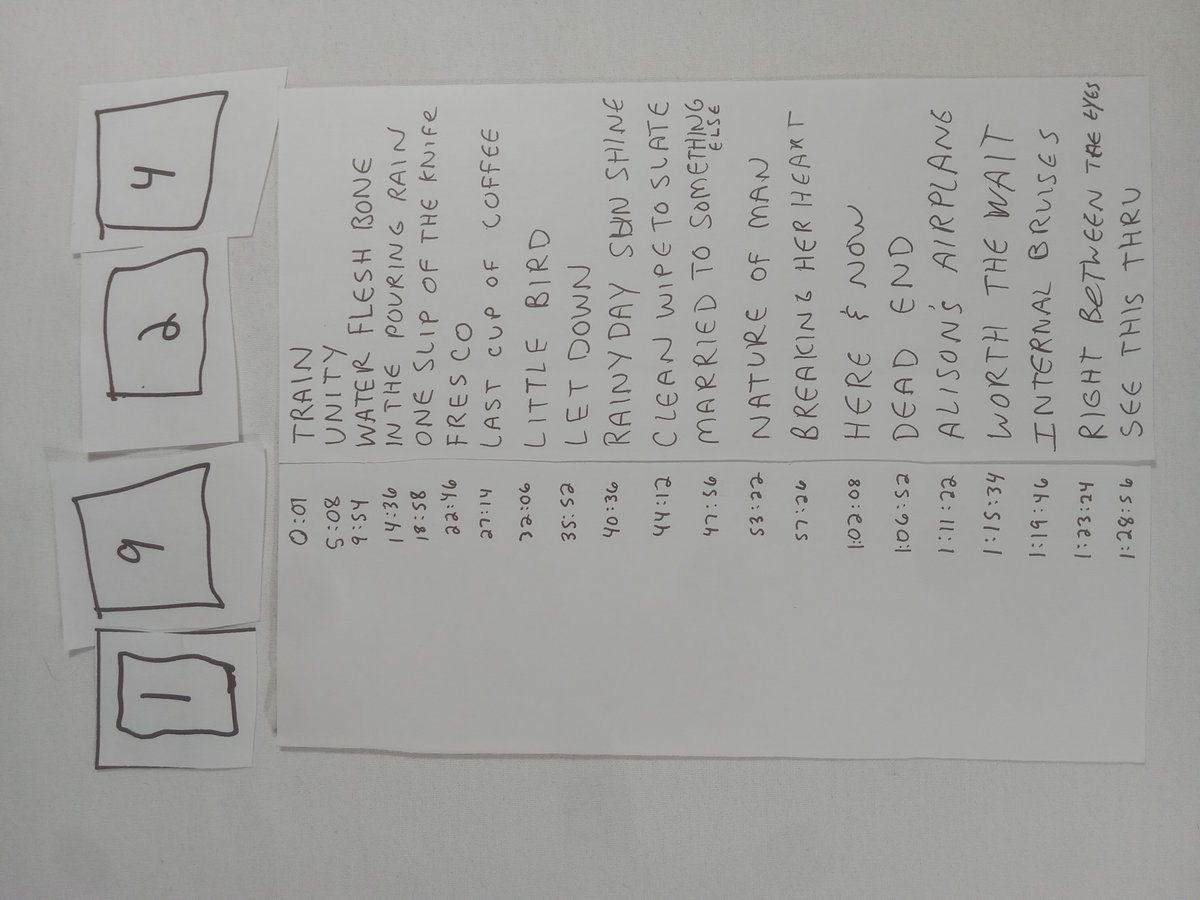 1 9 2 4
0:01 TRAIN
5:08 UNITY
9:54 WATER FLESH BONE
14:36 IN THE POURING RAIN
18:58 ONE SLIP OF THE KNIFE
22:46 FRESCO
27:14 LAST CUP OF COFFEE
32:06 LITTLE BIRD
35:52 LET DOWN
40:36 RAINY DAY SUN SHINE
44:12 CLEAN WIPE TO SLATE
47:56 MARRIED TO SOMETHING
ELSE
53:22 NATURE OF MAN
57:26 BREAKING HER HEART
1:02:08 HERE & NOW
1:06:52 DEAD END
1:11:22 ALISON'S AIRPLANE
1:15:34 WORTH THE WAIT
1:19:46 INTERNAL BRUISES
1:23:24 RIGHT BETWEEN THE EYES
1:28:56 SEE THIS THRU